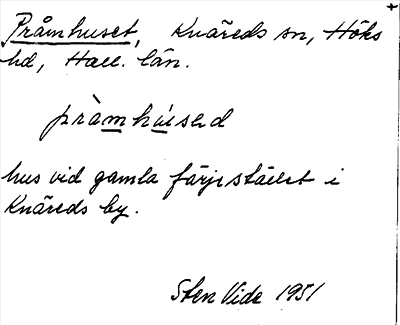 Pråmhuset, Knäreds sn, Höks
hd, Hall. län.
pràmhúsəd
hus vid gamla färjestället i
Knäreds by.
Sten Vide 1951